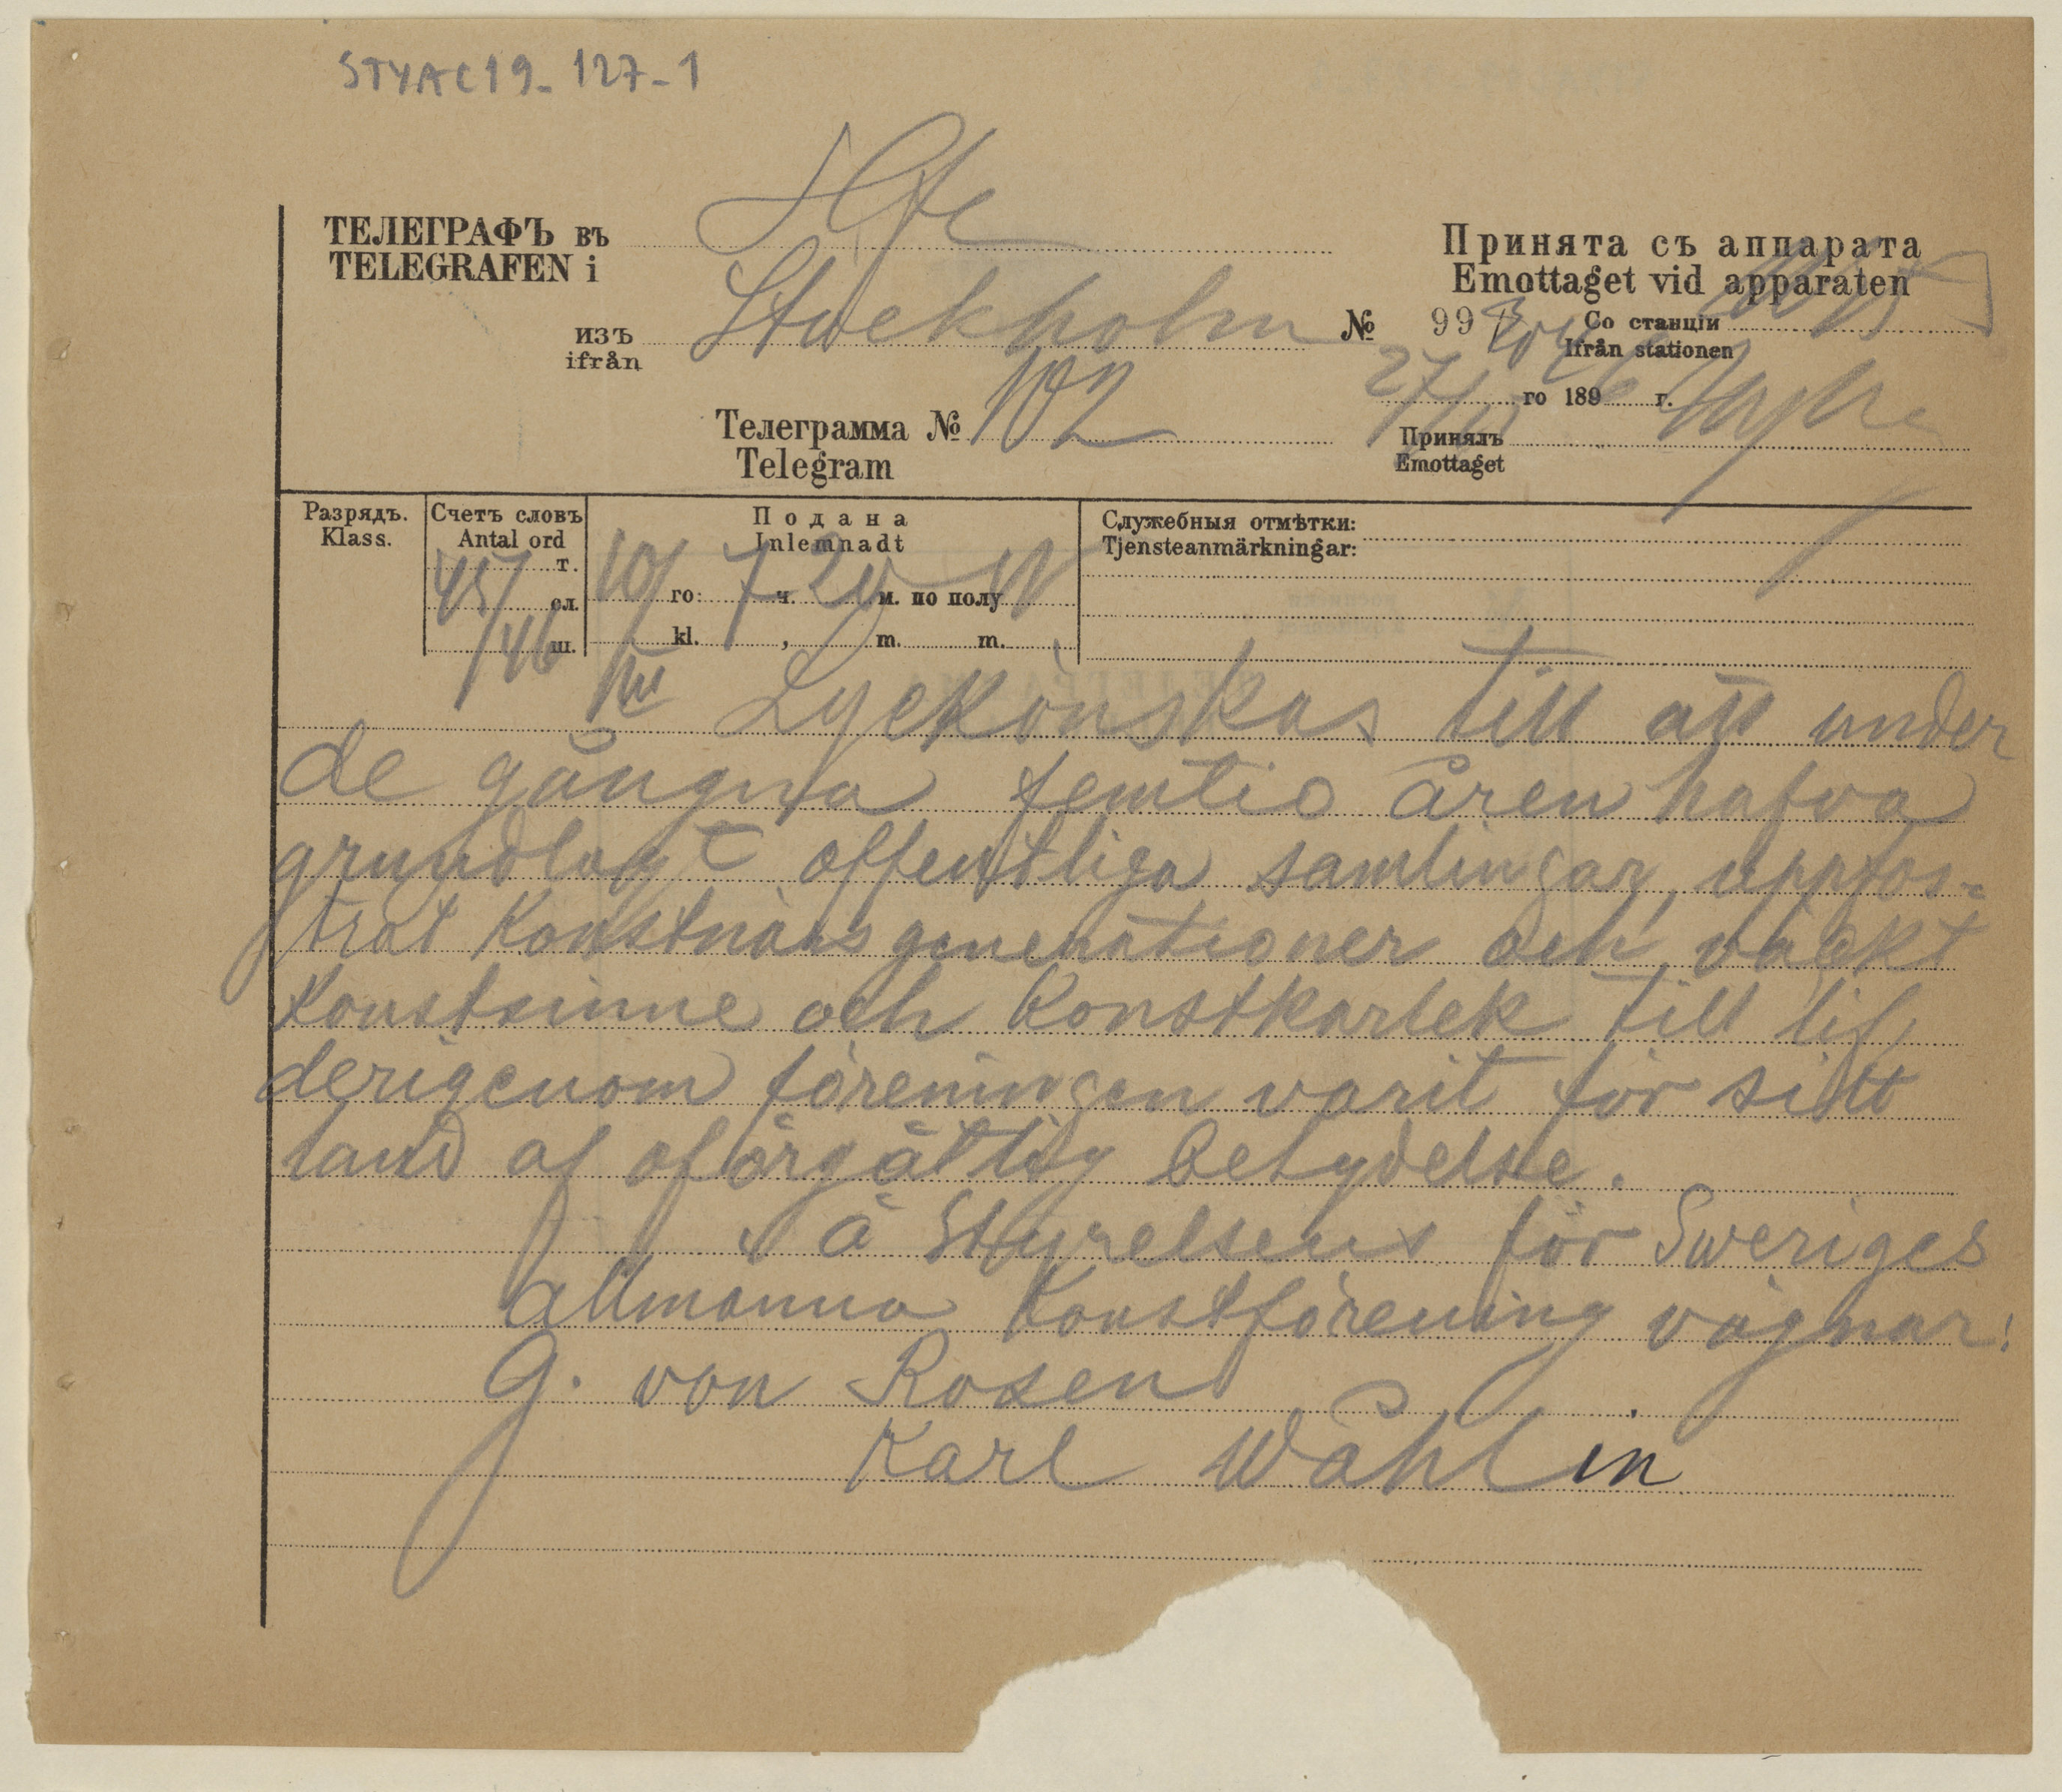 STYAC19-127-1
ТЕЛЕГРАФЪ въ Hfs
TELEGRAFEN i
изъ Stockholm № 99
ifrån
Телеграмма № 102
Telegram
Принята съ аппарата
Emottaget vid apparaten
Со станціи
Ifrån stationen
27/ го 189 6 г.
Принялъ
Emottaget
Разрядъ.
Klass.
Счетъ словъ
Antal ord
т.
45/ сл.
/46 ш.
Подана
Inlemnadt
10/ го: 7 ч. 20 м. по полу N
III kl. , m. m.
Служебныя отмѣтки:
Tjensteanmärkningar:
Lyckönskas till att under
de gångna femtio åren hafva
grundlagt offentliga samlingar, uppfos=
trat konstnärsgenerationer och väckt
konstsinne och konstkärlek till lif,
derigenom föreningen varit för sitt
land af oförgätlig betydelse.
å Styrelsens för Sweriges
allmänna konstförening vägnar:
G. von Rosen
Karl Wåhlin